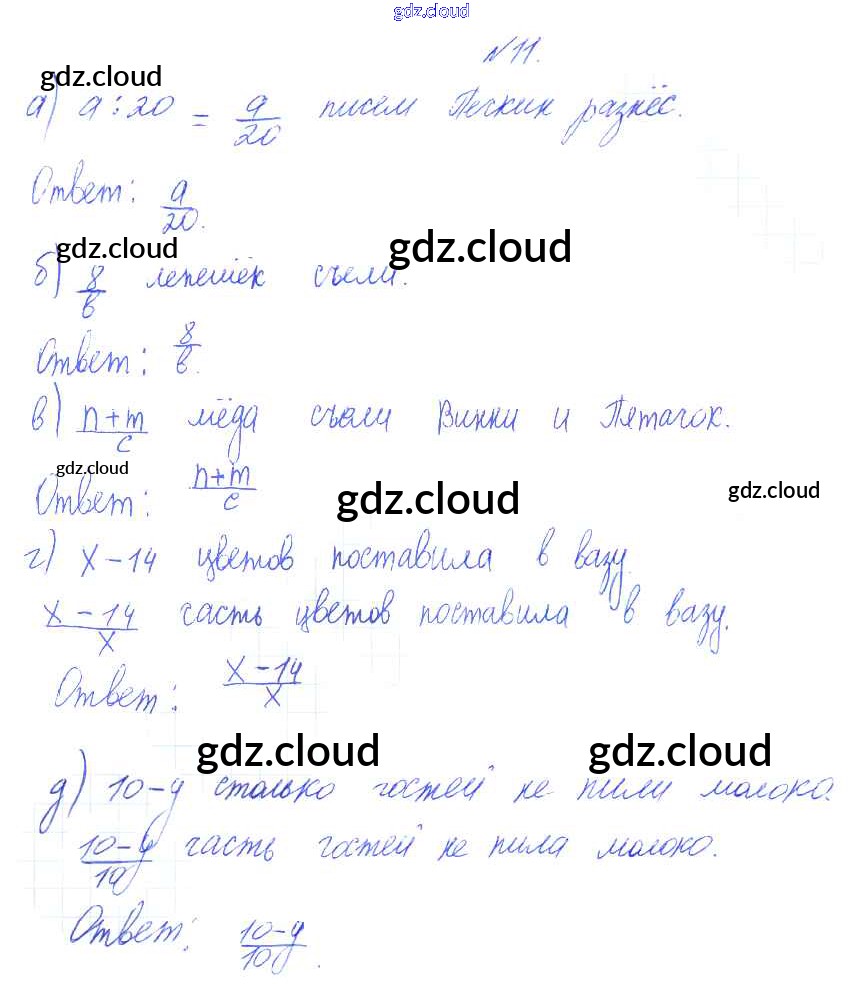 gdz.cloud
№11.
gdz.cloud
а) a : 20 = a/20 писем Печкин разнёс.
Ответ: a/20.
gdz.cloud gdz.cloud
б) 8/в лепешек съели.
Ответ: 8/в.
в) n+m/c мёда съели Винни и Пятачок.
gdz.cloud gdz.cloud gdz.cloud
Ответ: n+m/c
г) x – 14 цветов поставила в вазу.
x – 14/x часть цветов поставила в вазу.
Ответ: x – 14/x
gdz.cloud gdz.cloud
д) 10–y столько гостей не пили молоко.
10–y/10 часть гостей не пила молоко.
Ответ: 10–y/10.